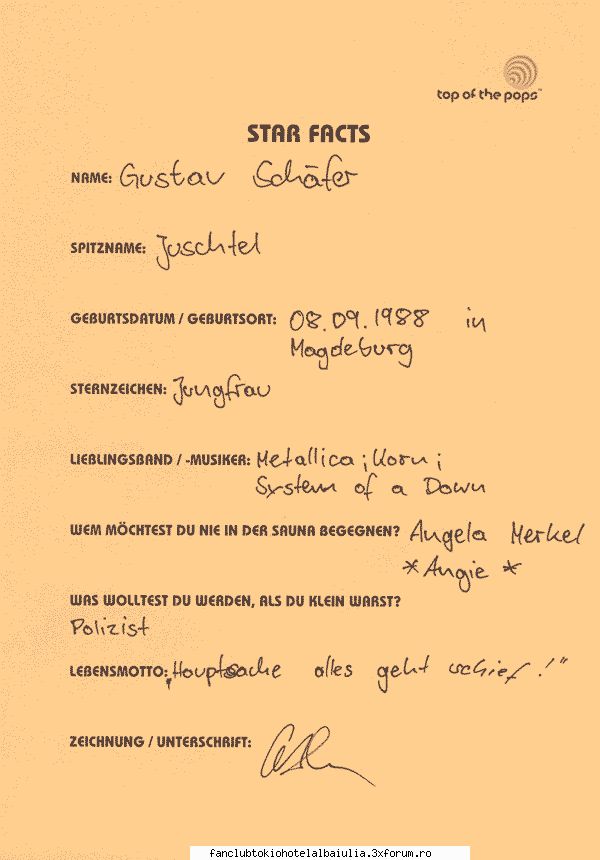 top of the pops
STAR FACTS
NAME: Gustav Schäfer
SPITZNAME: Juschtel
GEBURTSDATUM / GEBURTSORT: 08.09.1988 in
Magdeburg
STERNZEICHEN: Jungfrau
LIEBLINGSBAND / -MUSIKER: Metallica; Korn;
System of a Down
WEM MÖCHTEST DU NIE IN DER SAUNA BEGEGNEN? Angela Merkel
*Angie*
WAS WOLLTEST DU WERDEN, ALS DU KLEIN WARST?
Polizist
LEBENSMOTTO: „Hauptsache alles geht schief!"
ZEICHNUNG / UNTERSCHRIFT:
fanclubtokiohotelalbaiulia.3xforum.ro